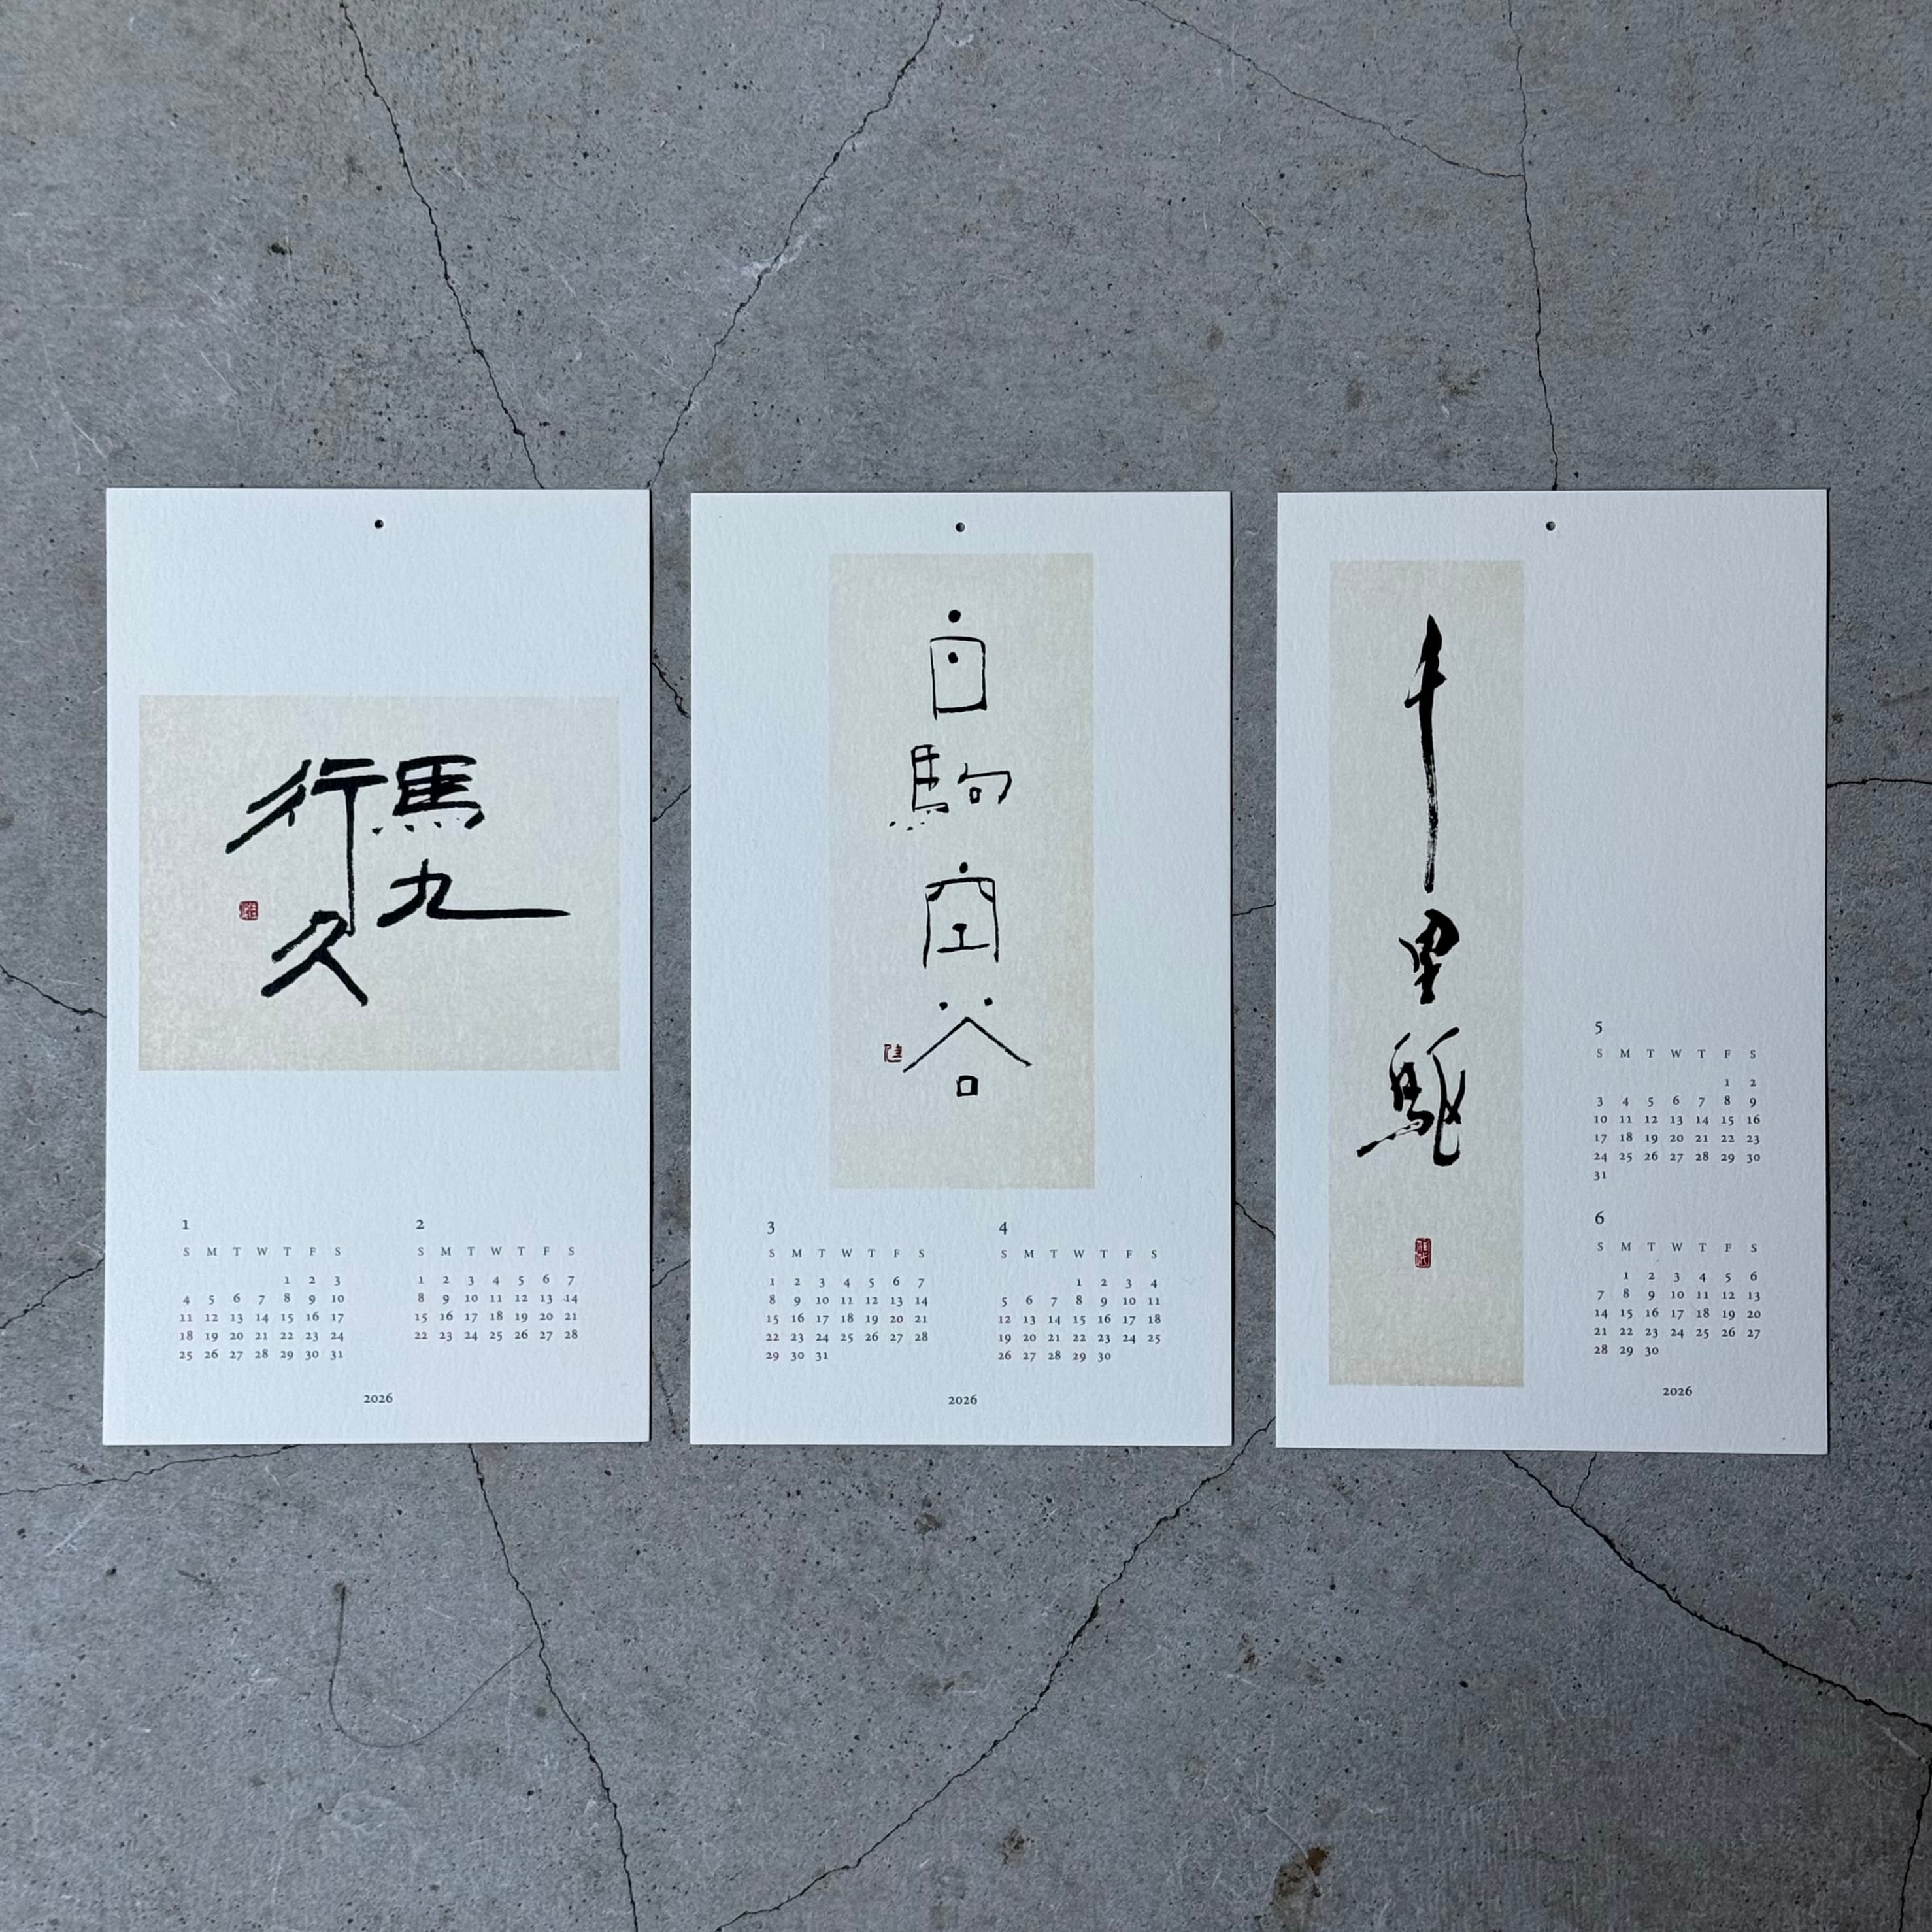 馬九
行久
1
S M T W T F S
1 2 3
4 5 6 7 8 9 10
11 12 13 14 15 16 17
18 19 20 21 22 23 24
25 26 27 28 29 30 31
2
S M T W T F S
1 2 3 4 5 6 7
8 9 10 11 12 13 14
15 16 17 18 19 20 21
22 23 24 25 26 27 28
2026
白駒空谷
3
S M T W T F S
1 2 3 4 5 6 7
8 9 10 11 12 13 14
15 16 17 18 19 20 21
22 23 24 25 26 27 28
29 30 31
4
S M T W T F S
1 2 3 4
5 6 7 8 9 10 11
12 13 14 15 16 17 18
19 20 21 22 23 24 25
26 27 28 29 30
2026
千里駆
5
S M T W T F S
1 2
3 4 5 6 7 8 9
10 11 12 13 14 15 16
17 18 19 20 21 22 23
24 25 26 27 28 29 30
31
6
S M T W T F S
1 2 3 4 5 6
7 8 9 10 11 12 13
14 15 16 17 18 19 20
21 22 23 24 25 26 27
28 29 30
2026